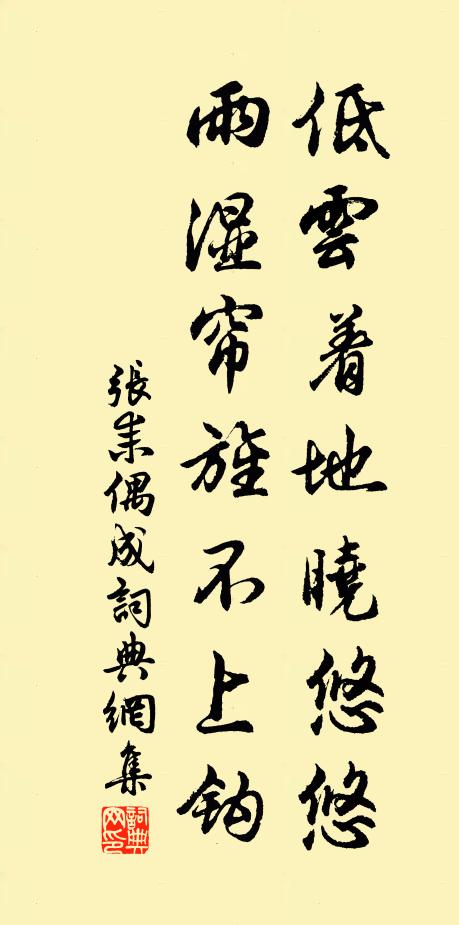 低雲着地曉悠悠
雨湿帘旌不上鈎
張耒偶成詞典網集
詞典網印